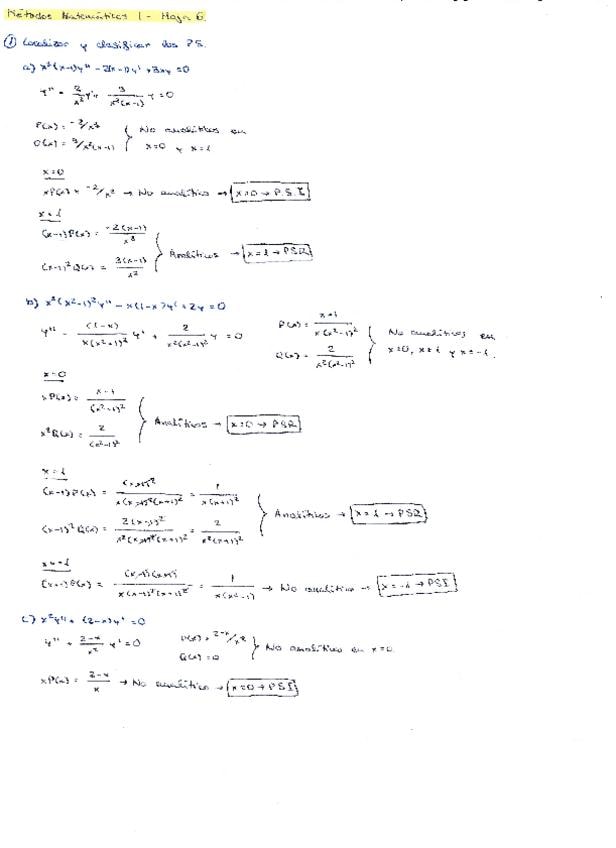 Métodos Matemáticos I - Hoja 6.
① Localizar y clasificar los P.S.
a) x³(x-1)y'' - 2(x-1)y' + 3xy = 0
y'' - 2/x³ y' + 3/x²(x-1) y = 0
P(x) = -2/x³
Q(x) = 3/x²(x-1)
No analíticos en
x=0 y x=1
x=0
xP(x) = -2/x² → No analítico → x=0 → P.S.I
x=1
(x-1)P(x) = -2(x-1)/x³
(x-1)²Q(x) = 3(x-1)/x²
Analíticos → x=1 → PSR
b) x²(x²-1)²y'' - x(1-x)y' + 2y = 0
y'' - (1-x)/x(x²-1)² y' + 2/x²(x²-1)² y = 0
P(x) = x-1/x(x²-1)²
Q(x) = 2/x²(x²-1)²
No analíticos en
x=0, x=1 y x=-1.
x=0
xP(x) = x-1/(x²-1)²
x²Q(x) = 2/(x²-1)²
Analíticos → x=0 → PSR
x=1
(x-1)P(x) = (x-1)²/x(x-1)²(x+1)² = 1/x(x+1)²
(x-1)²Q(x) = 2(x-1)²/x²(x-1)²(x+1)² = 2/x²(x+1)²
Analíticos → x=1 → PSR
x=-1
= 1/x(x²-1) → No analítico → x=-1 → PSI
c) x²y'' + (2-x)y' = 0
y'' + 2-x/x² y' = 0
P(x) = 2-x/x²
Q(x) = 0
No analítico en x=0
xP(x) = 2-x/x → No analítico → x=0 → PSI